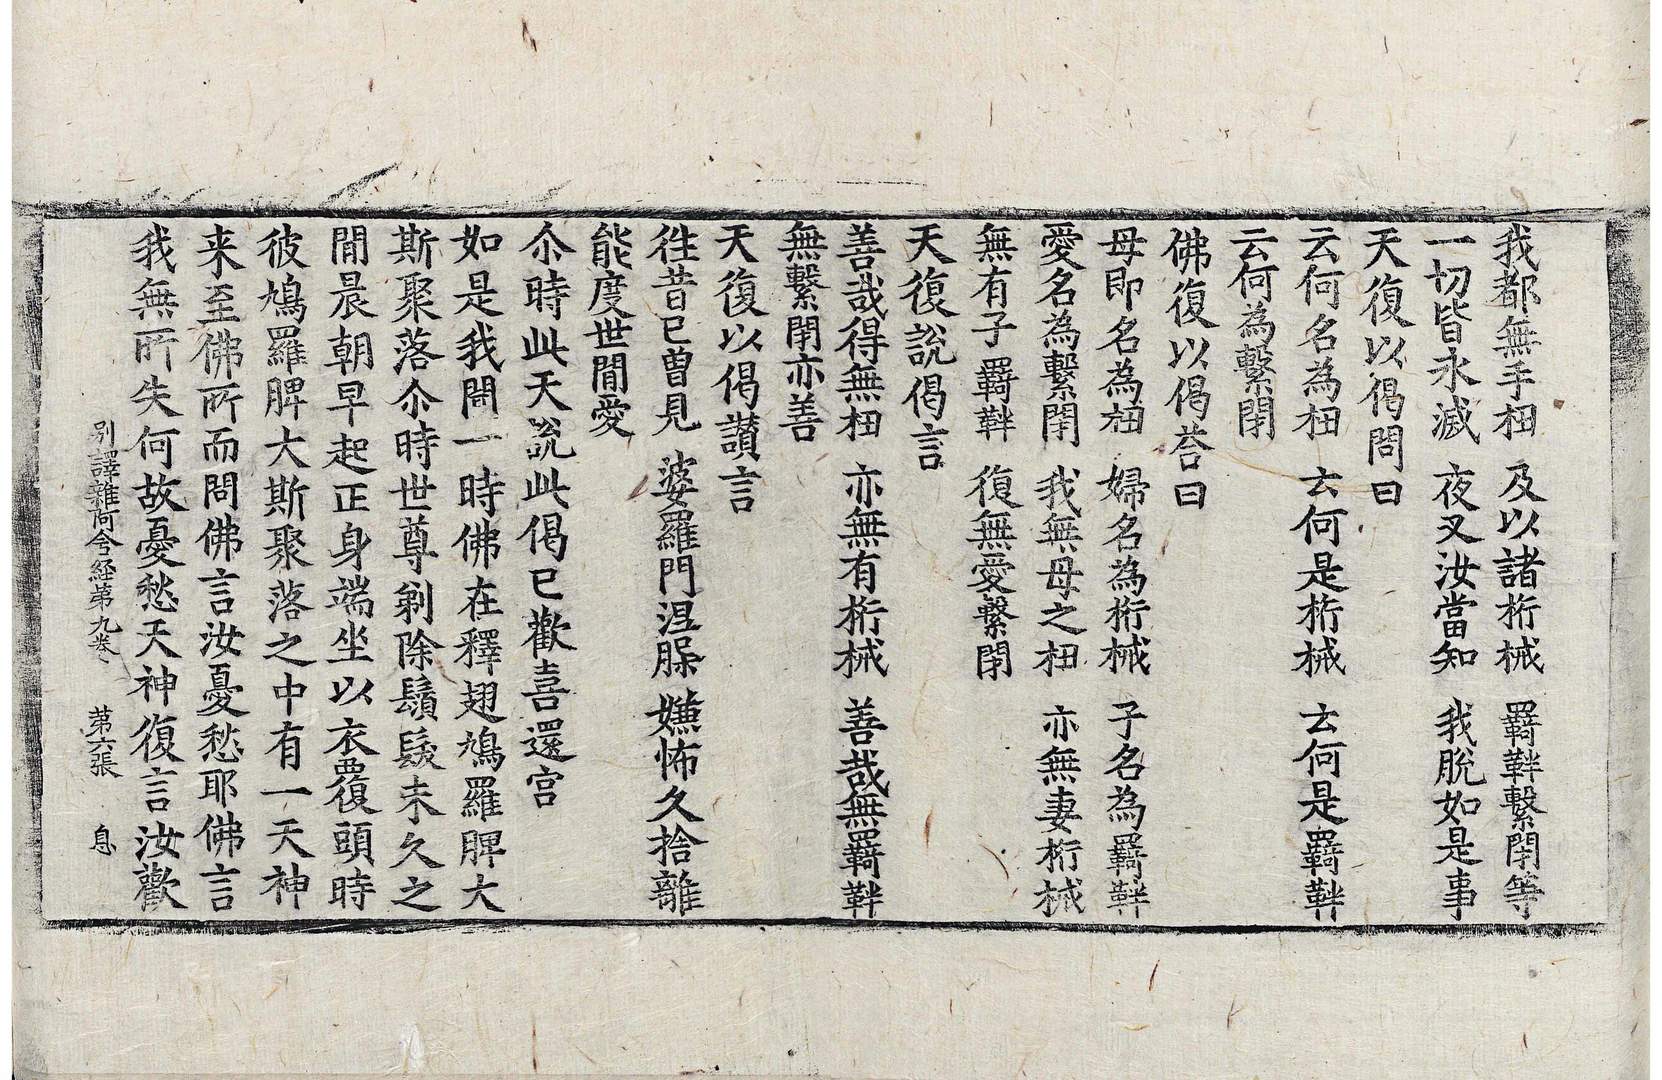 我都無手杻　及以諸桁械　羇靽繫閉等
一切皆永滅　夜叉汝當知　我脫如是事
天復以偈問曰
云何名為杻　云何是桁械　云何是羇靽
云何為繫閉
佛復以偈荅曰
母即名為杻　婦名為桁械　子名為羇靽
愛名為繫閉　我無母之杻　亦無妻桁械
無有子羇靽　復無愛繫閉
天復說偈言
善哉得無杻　亦無有桁械　善哉無羇靽
無繫閉亦善
天復以偈讃言
徃昔已曽見　婆羅門涅槃　嫌怖久捨離
能度世間愛
尒時此天說此偈已歡喜還宫
如是我聞一時佛在釋翅鳩羅脾大
斯聚落尒時世尊剃除鬚髮未久之
間晨朝早起正身端坐以衣覆頭時
彼鳩羅脾大斯聚落之中有一天神
来至佛所而問佛言汝憂愁耶佛言
我無所失何故憂愁天神復言汝歡
别譯雜阿含経第九卷　第六張　息